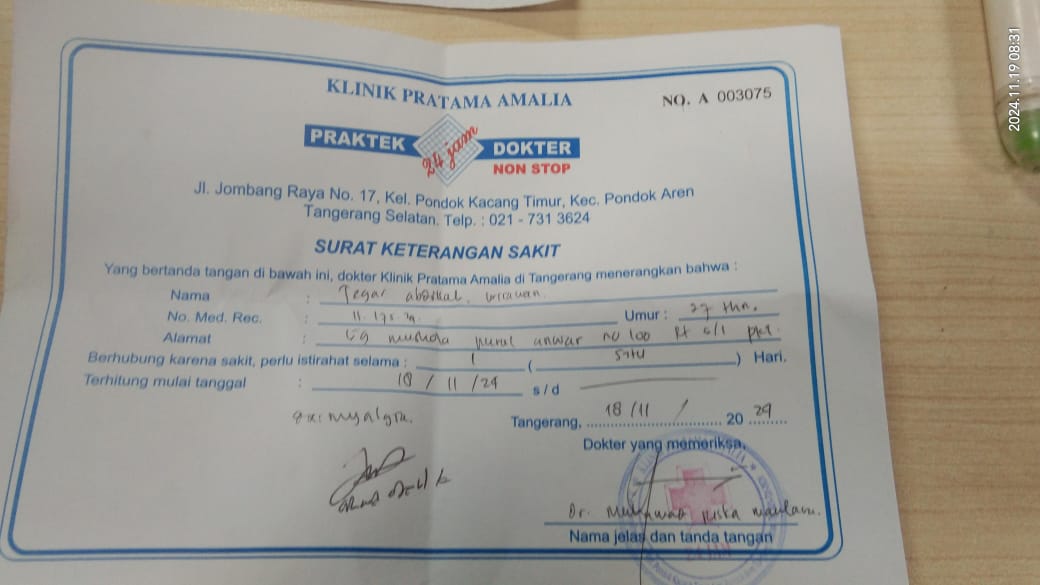 KLINIK PRATAMA AMALIA
NO. A 003075
PRAKTEK 24 jam DOKTER
NON STOP
Jl. Jombang Raya No. 17, Kel. Pondok Kacang Timur, Kec. Pondok Aren
Tangerang Selatan. Telp. : 021 - 731 3624
SURAT KETERANGAN SAKIT
Yang bertanda tangan di bawah ini, dokter Klinik Pratama Amalia di Tangerang menerangkan bahwa :
Nama : Tegar
No. Med. Rec. : Umur : 27 thn.
Alamat : nurul anwar no 100 Rt
Berhubung karena sakit, perlu istirahat selama : 1 ( satu ) Hari.
Terhitung mulai tanggal : 18 / 11 / 24 s/d
Tangerang, 18/11 / 20 24
Dokter yang memeriksa,
Dr.
Nama jelas dan tanda tangan
2024.11.19 08:31